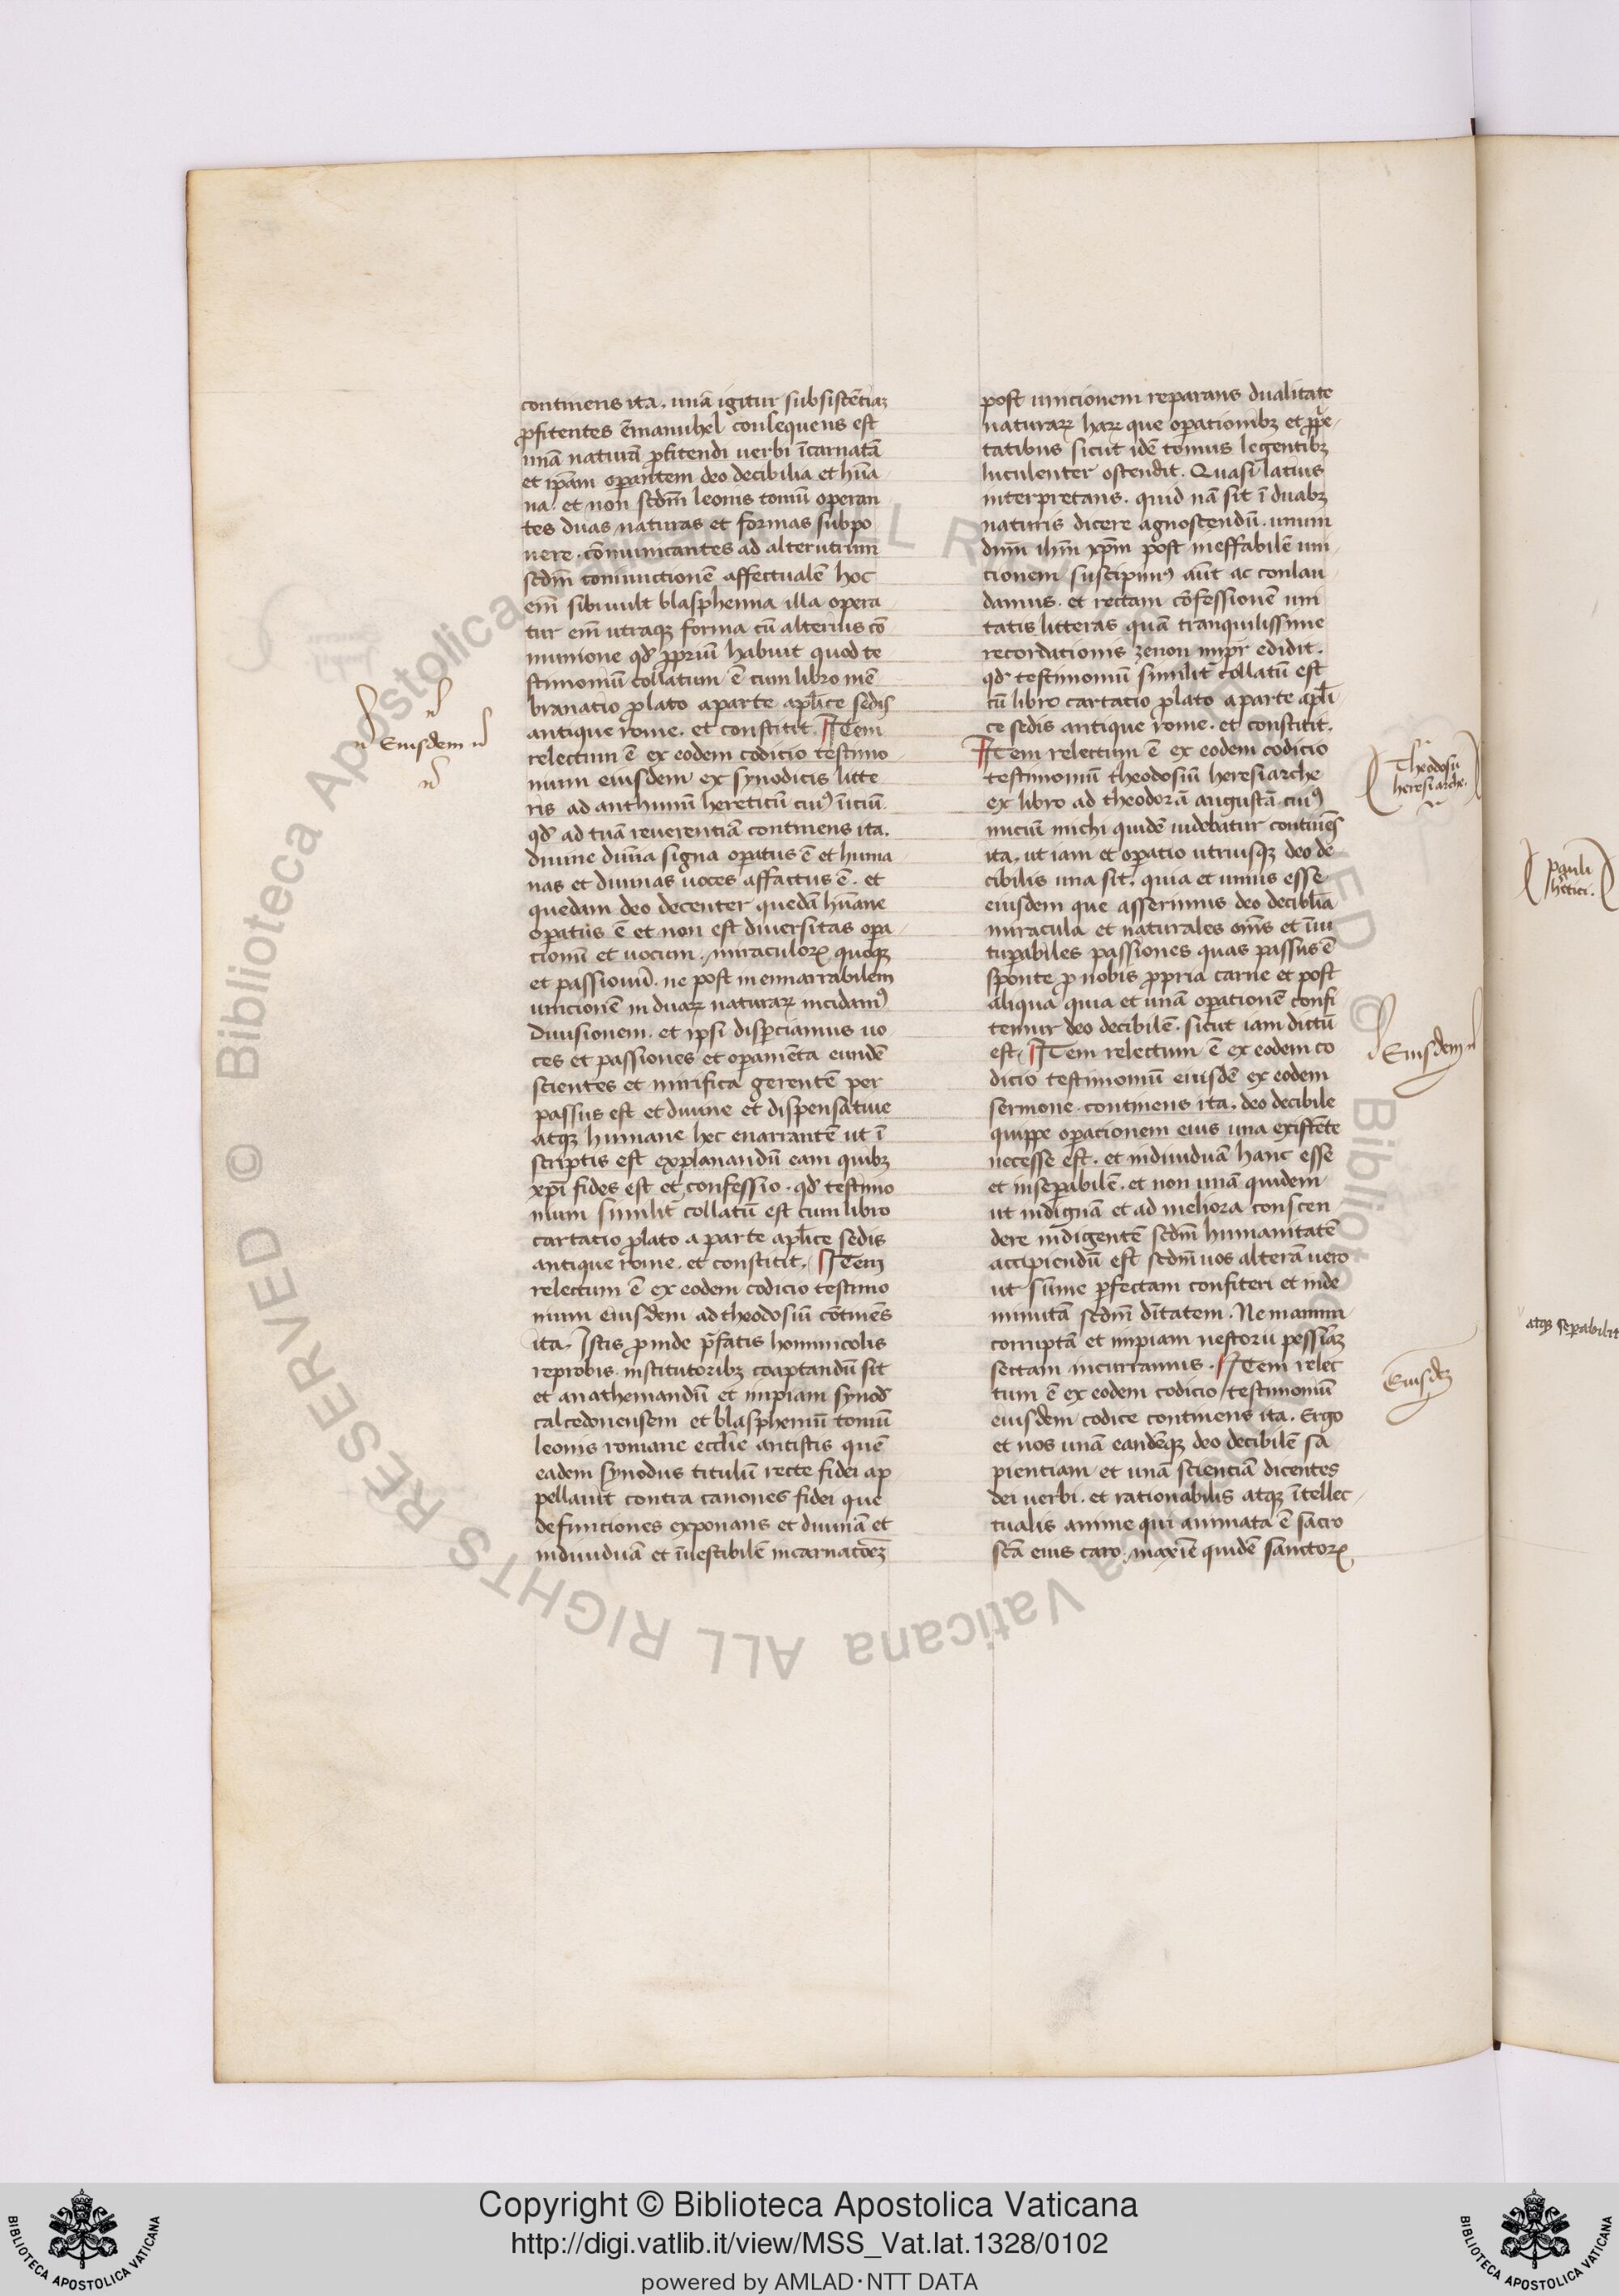 continens ita. unā igitur subsistētiaʒ
ꝓfitentes ēmanuhel consequens est
unā naturā ꝓfitendi uerbi īcarnatā
et ip̄am oꝑantem deo decibilia et hūa
na. et non scd̄m leonis tomū operan
tes duas naturas et formas subpo
nere. cōmunicantes ad alterutrum
scd̄m coniunctionē affectualē hoc
em̄ sibi uult blasphemia illa opera
tur em̄ utraqꝫ forma cū alterius cō
munione qd̄ ꝓpriū habuit quod te
stimoniū collatum ē cum libro mē
branatio ꝓlato a parte apl̄ice sedis
antique rome. et constitit. Item
relectum ē ex eodem codicio testimo
nium eiusdem ex synodicis litte
ris ad anthimū hereticū cuiꝰ īciū
qd̄ ad tuā reuerentiā continens ita.
diuine diuīa signa oꝑatus ē et huma
nas et diuinas uoces affactus ē. et
quedam deo decenter quedā hūane
oꝑatus ē et non est diuersitas opa
tionū et uocum. miraculoꝝ quoqꝫ
et passionū. ne post inennarrabilem
unicionē in duaꝝ naturaꝝ incidamꝰ
diuisionem. et ipsi disꝑciamus uo
ces et passiones et oꝑamēta eundē
scientes et mirifica gerentē per
passus est et diuine et dispensatiue
atqꝫ humane hec enarrantē ut ī
scriptis est explanandū eam quibꝫ
xp̄i fides est et confessio. qd̄ testimo
nium similit̄ collatū est cum libro
cartacio ꝓlato a parte apl̄ice sedis
antique rome. et constitit. Item
relectum ē ex eodem codicio testimo
nium eiusdem ad theodosiū cōtinēs
ita. Istis ꝓinde p̄fatis hominicolis
reprobis institutoribꝫ coaptandū sit
et anathemandū et impiam synod̄
calcedonensem et blasphemū tomū
leonis romane eccl̄ie antistis quē
eadem synodus titulū recte fidei ap
pellauit contra canones fidei que
definitiones exponans et diuinā et
indiuiduā et īuestibilē incarnatōeꝫ
post unicionem reparans dualitate
naturaꝝ haꝝ que oꝑationibꝫ et ꝓp̄e
tatibus sicut idē tomus legentibꝫ
luculenter ostendit. Quasi latius
interpretans. quid nā sit ī duabꝫ
naturis dicere agnoscendū. unum
dn̄m ih̄m xp̄m post ineffabilē uni
cionem suscipimꝰ aūt ac conlau
damus. et rectam cōfessionē uni
tatis litteras quā tranquilissime
recordationis zenon imp̄r edidit.
qd̄ testimoniū similit̄ collatū est
cū libro cartacio ꝓlato a parte apl̄i
ce sedis antique rome. et constitit.
Item relectum ē ex eodem codicio
testimoniū theodosiū heresiarche
ex libro ad theodorā augustā cuiꝰ
iniciū michi quidē uidebatur continēs
ita. ut iam et oꝑatio utriusqꝫ deo de
cibilis una sit. quia et unius esse
eiusdem que asserimus deo decibl̄ia
miracula et naturales om̄s et īui
tuꝑabiles passiones quas passus ē
sponte ꝓ nobis ꝓpria carne et post
aliqua quia et unā oꝑationē confi
temur deo decibilē. sicut iam dictū
est. Item relectum ē ex eodem co
dicio testimoniū eiusdē ex eodem
sermone continens ita. deo decibile
quippe oꝑationem eius una existēte
necesse est. et indiuiduā hanc esse
et inseꝑabilē. et non unā quidem
ut indignā et ad meliora conscen
dere indigentē scd̄m humanitatē
accipiendū est scd̄m uos alterā uero
ut sūme ꝑfectam confiteri et inde
minutā scd̄m dītatem. Ne manim
corruptā et impiam nestorii pessimāʒ
sectam incurramus. Item relec
tum ē ex eodem codicio testimoniū
eiusdem codice continens ita. Ergo
et nos unā eandēqꝫ deo decibilē sa
pientiam et unā scienciā dicentes
dei uerbi. et rationabilis atqꝫ ītellec
tualis anime qui animata ē sacro
sc̄a eius caro. maxīe quidē sanctoꝝ
Eiusdem
Theodosii
heresiarche.
Eiusdem
Eiusdeʒ
pauli
h̄etici.
atqꝫ seꝑabilit
© Biblioteca Apostolica Vaticana ALL RIGHTS RESERVED
Copyright © Biblioteca Apostolica Vaticana
http://digi.vatlib.it/view/MSS_Vat.lat.1328/0102
powered by AMLAD·NTT DATA
BIBLIOTECA APOSTOLICA VATICANA
BIBLIOTECA APOSTOLICA VATICANA